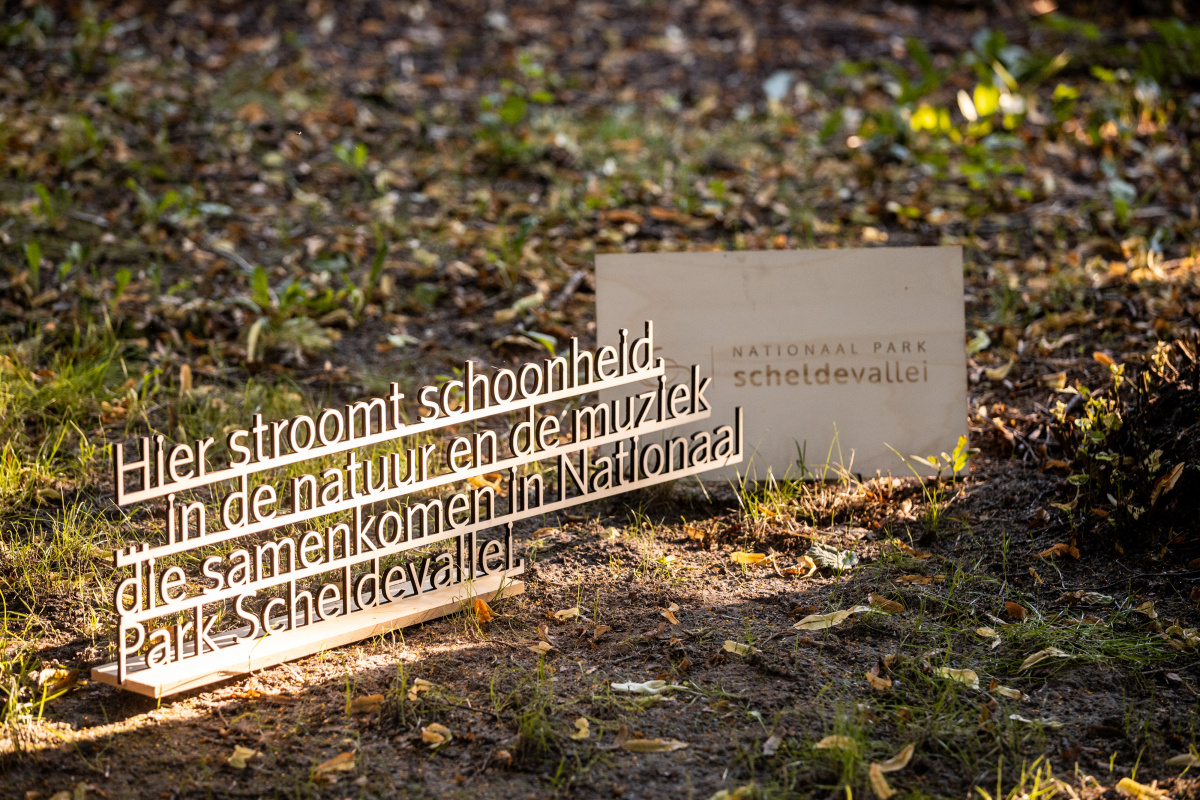 Hier stroomt schoonheid,
... in de natuur en de muziek
die samenkomen in Nationaal
Park Scheldevallei.
NATIONAAL PARK
scheldevallei